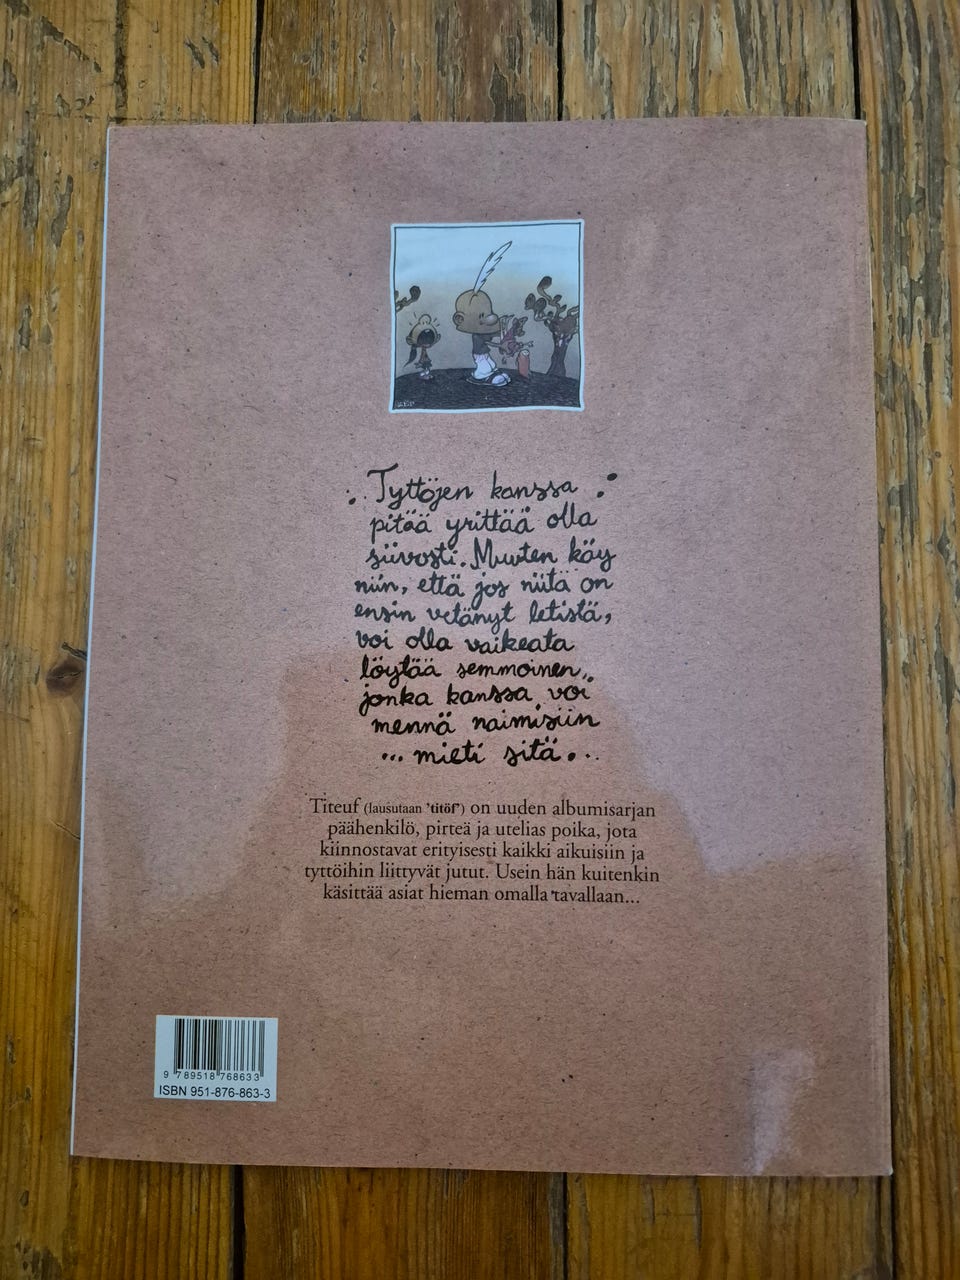 Tyttöjen kanssa
pitää yrittää olla
siivosti. Muuten käy
niin, että jos niitä on
ensin vetänyt letistä,
voi olla vaikeata
löytää semmoinen,
jonka kanssa voi
mennä naimisiin
... mieti sitä...
Titeuf (lausutaan 'titöf') on uuden albumisarjan
päähenkilö, pirteä ja utelias poika, jota
kiinnostavat erityisesti kaikki aikuisiin ja
tyttöihin liittyvät jutut. Usein hän kuitenkin
käsittää asiat hieman omalla tavallaan...
9 789518 768633
ISBN 951-876-863-3